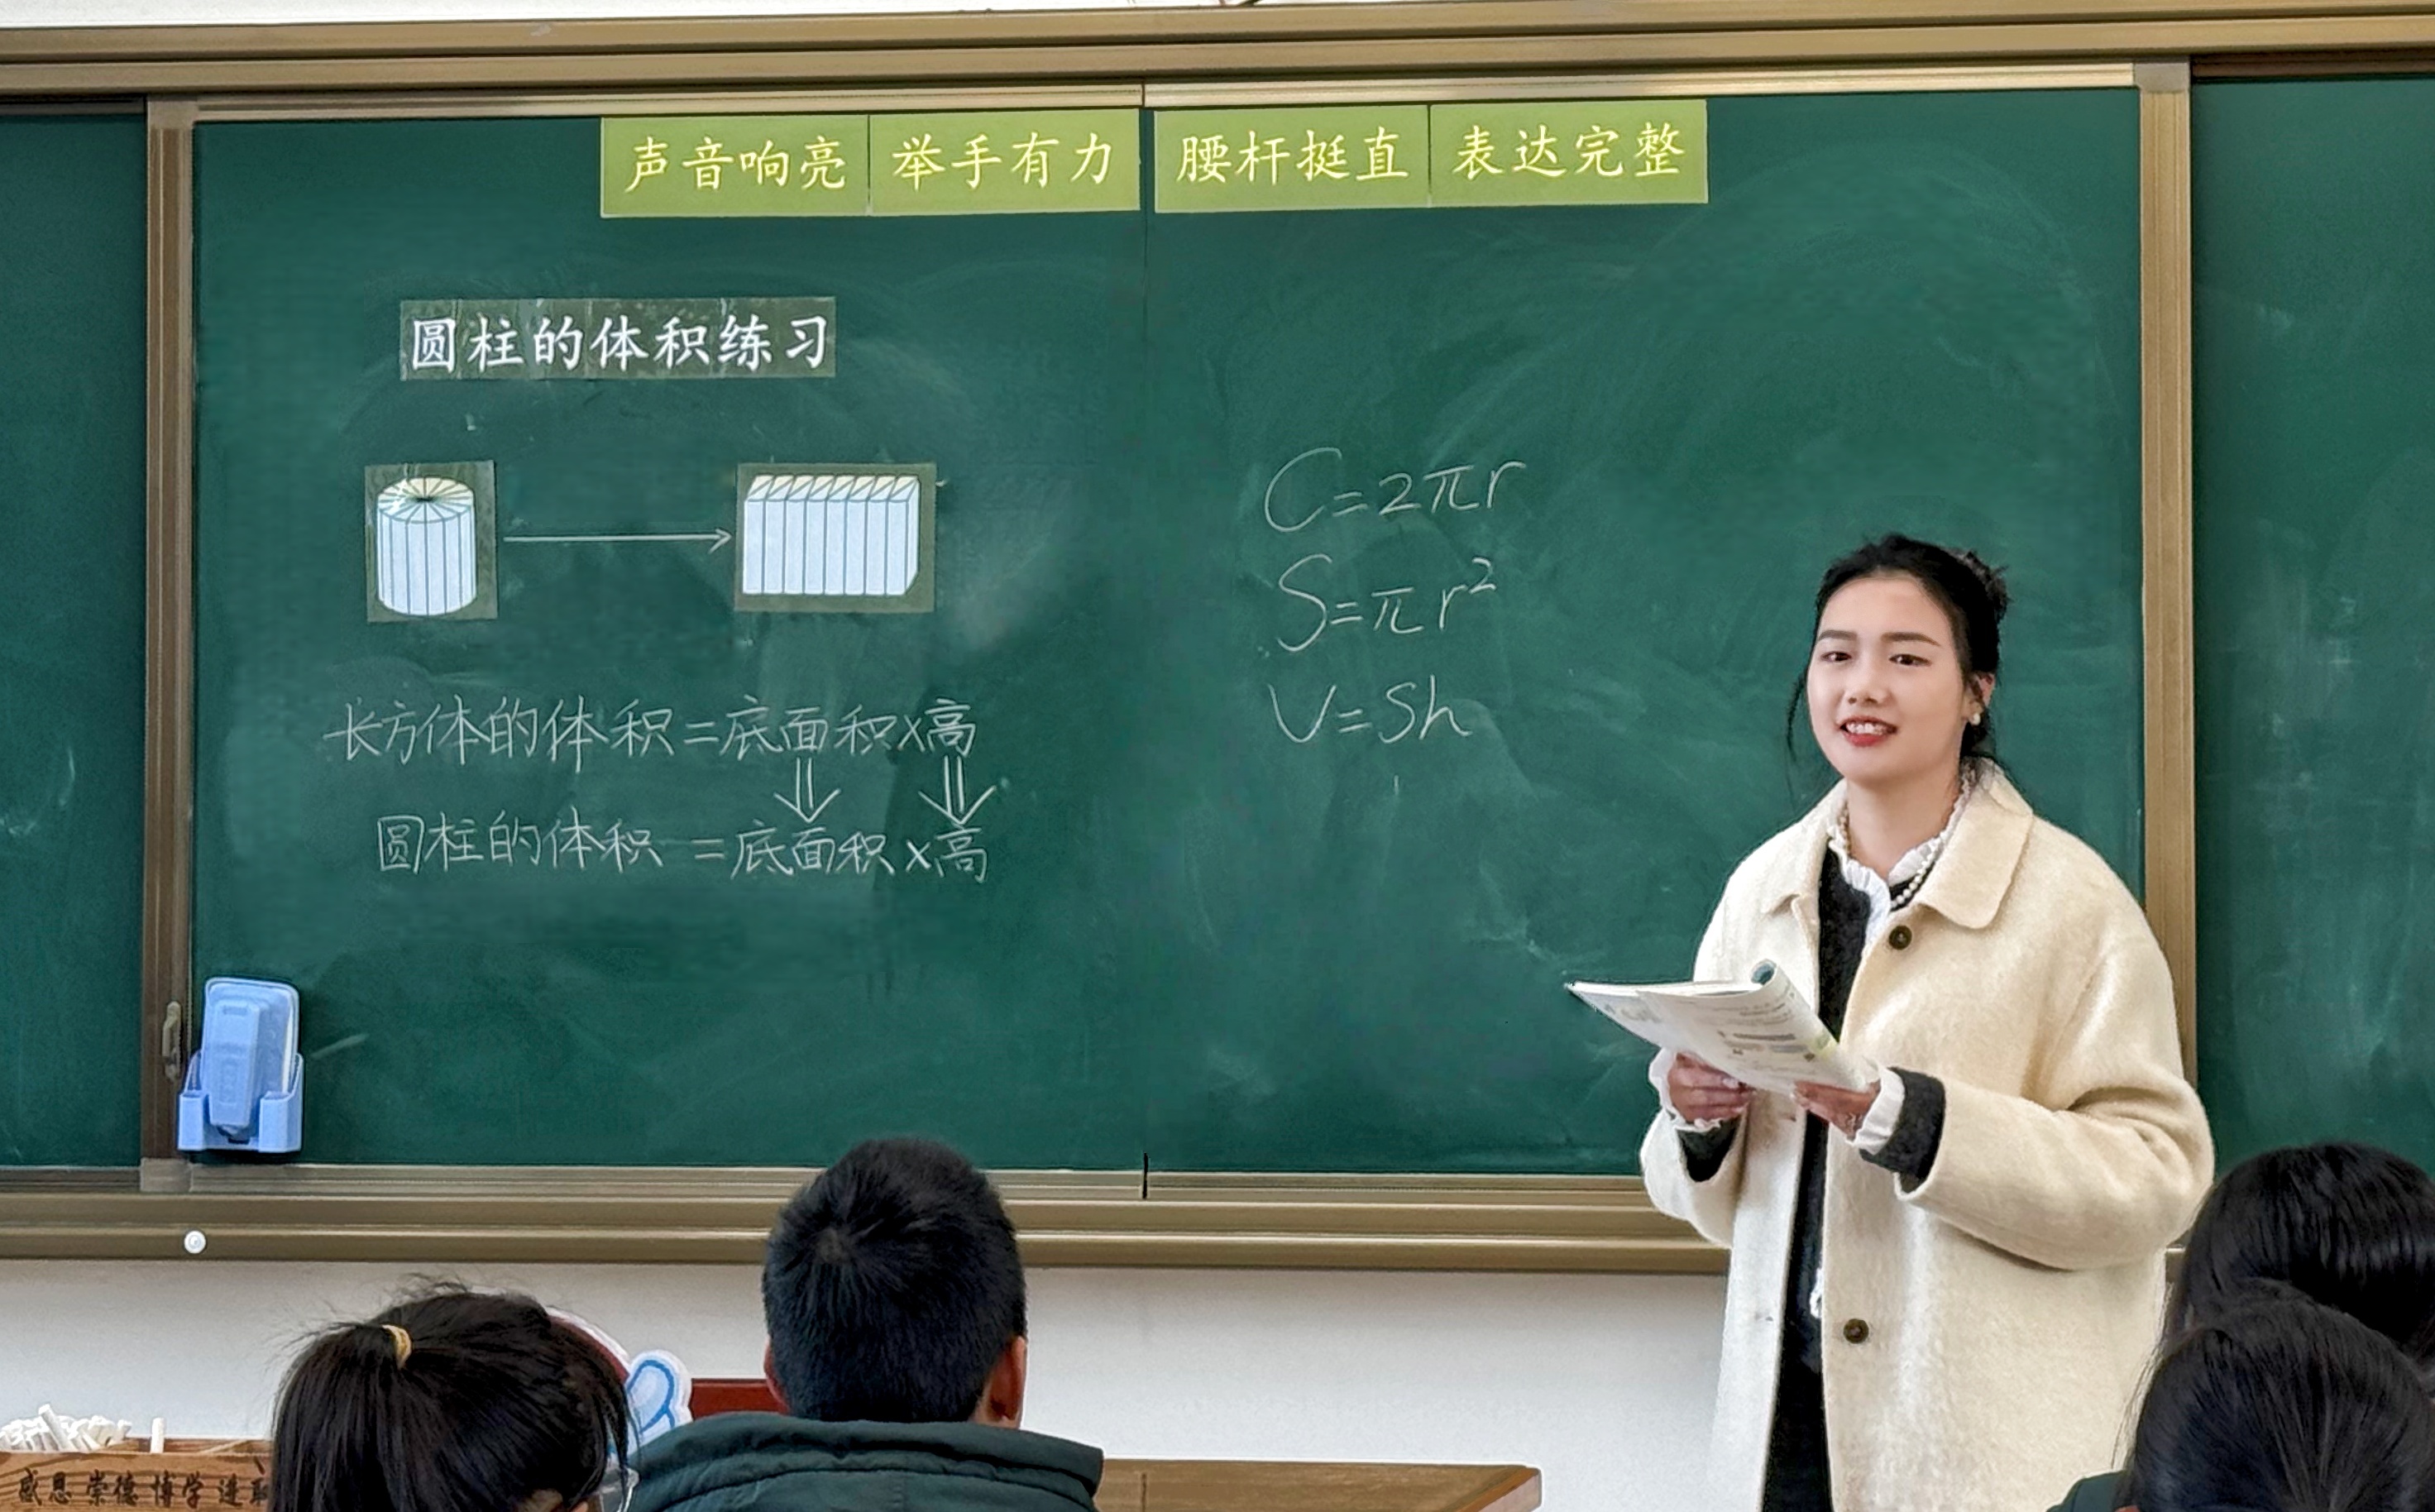 声音响亮 举手有力 腰杆挺直 表达完整
圆柱的体积练习
长方体的体积=底面积×高
圆柱的体积=底面积×高
C=2πr
S=πr²
V=Sh
感恩 崇德 博学 进取